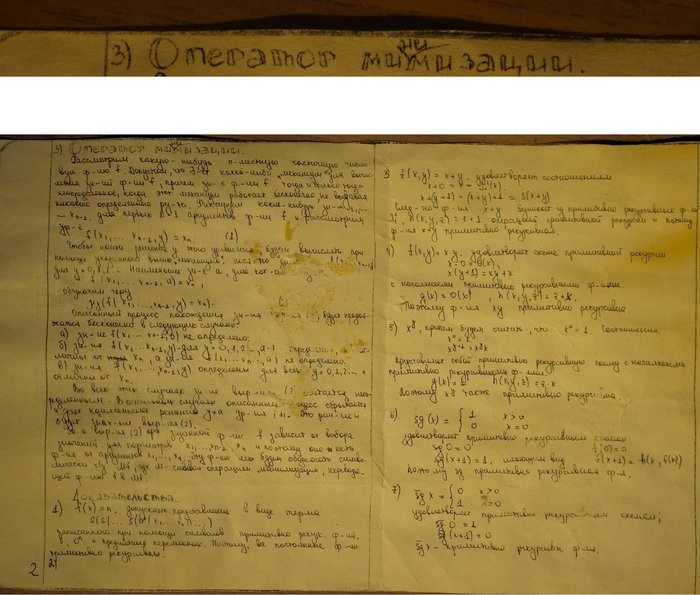 3) Оператор минимизации.
3) Оператор минимизации.
Рассмотрим какую-нибудь n-местную частичную число
вую ф-лю f. Допустим, что какой-либо "механизм" для вычис
ления зн-ий ф-ии f, причем зн-е ф-ии f тогда и только тогда
неопределенное, когда этот механизм работает бесконечно не выдавая
никакого определенного рез-та. Фиксируем какие-нибудь зн-ия x₁,...
xn-1 для первых n-1 аргументов ф-ии f и рассмотрим
ур-е
f(x₁,... xn-1, y) = xn (1)
Чтобы найти решение y этого уравнения, будем вычислять при
помощи указанного выше "механизма" послед. зн-ия f(x₁,... xn-1, y)
для y = 0,1,2... Наименьшее зн-е a, для кот-ого
f(x₁,... xn-1, a) = xn,
обозначим через
μy(f(x₁,... xn-1, y) = xn). (2)
Описанный процесс нахождения зн-ия выр-ия (2) будет продол
жаться бесконечно в следующих случаях:
а) зн-ие f(x₁,... xn-1, 0) не определено;
б) зн-ия f(x₁,... xn-1, y) для y = 0,1,2..., a-1 определены, но от
личны от xn, а зн-ие f(x₁,... xn-1, a) не определено.
в) зн-ия f(x₁,... xn-1, y) определены для всех y = 0,1,2... и
отличны от xn.
Во всех этих случаях зн-ие выр-ия (2) считается нео
пределенным. В остальных случаях описанный процесс обрывается
и дает наименьшее решение y=a ур-ия (1). Это реш-ие и
будет знач-ем выр-ия (2).
Зн-е выр-ия (2) при заданной ф-ии f зависит от выбора
значений для параметров x₁,... xn-1, xn и поэтому оно есть
ф-ие от аргументов x₁,... xn. Эту ф-ию мы будем обозначать симво
лически ч/з Mf, где M - символ операции минимизации, переводя
щей ф-ию f в Mf.
Доказательства.
1) f(x)=n. допускает представление в виде терма
S(S(... S(O(x₁,... xn)...)
записанного при помощи символов примитивно рекурс. ф-ий
S, O и предметных переменных. Поэтому все постоянные ф-ии
примитивно рекурсивны.
2)
2
3) f(x,y) = x+y - удовлетворяет соотношениям
x+0 = x = I(x)
x+(y+1) = (x+y)+1 = S(x+y)
След-но, ф-ия x+y возникает из примитивно рекурсивных ф-ий
I, h(x,y,z) = z+1 операцией примитивной рекурсии и потому
ф-ия x+y примитивно рекурсивна.
4) f(x,y) = xy. удовлетворяет схеме примитивной рекурсии
x·0 = O(x),
x(y+1) = xy + x
с начальными примитивно рекурсивными ф-иями.
g(x) = O(x), h(x,y,z) = z+x.
Поэтому ф-ия xy примитивно рекурсивна.
5) x^y, причем будем считать, что x⁰ = 1. Соотношения
x⁰ = 1
x^y+1 = x^y x
представляют собой примитивно рекурсивную схему с начальными
примитивно рекурсивными ф-иями
g(x) = 1 h(x,y,z) = z·x
Поэтому x^y тоже примитивно рекурсивна.
6) sg(x) = { 1 x>0
0 x=0
удовлетворяет примитивно рекурсивным схемам
sg 0 = 0 f(0) = 0
sg(x+1) = 1. имеющим вид f(x+1) = h(x, f(x))
Поэтому sg примитивно рекурсивная ф-ия.
7) s̅g̅ x = { 0 x>0
1 x=0
удовлетворяет примитивно рекурсивным схемам;
s̅g̅ 0 = 1
s̅g̅(x+1) = 0
s̅g̅ x - примитивно рекурсивн. ф-ия.